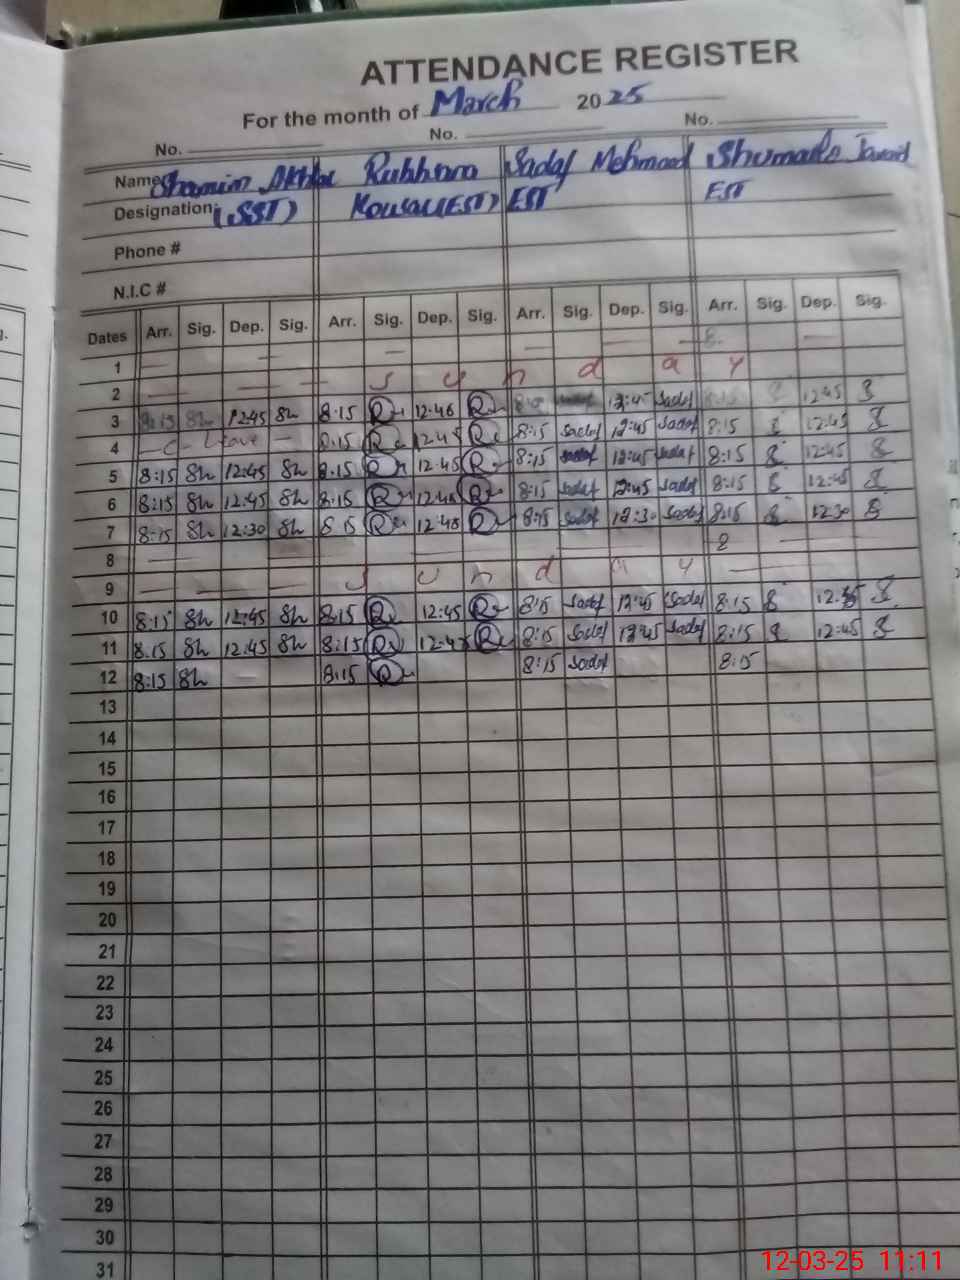 ATTENDANCE REGISTER
For the month of March 2025
No. No. No.
Name Shamim Akhtar Rukhhana Sadaf Mehmood Shumaila Javaid
Designation: (SST) Kousar (EST) EST EST
Phone #
N.I.C #
Dates Arr. Sig. Dep. Sig. Arr. Sig. Dep. Sig. Arr. Sig. Dep. Sig. Arr. Sig. Dep. Sig.
1
2 S u n d a y
3 8:15 Sh 12:45 Sh 8:15 R 12:45 R 12:45 Sadaf 8:15 12:45
4 C - Leave - 8:15 R 12:45 R 8:15 Sadaf 12:45 Sadaf 8:15 12:45
5 8:15 Sh 12:45 Sh 8:15 R 12:45 R 8:15 Sadaf 12:45 Sadaf 8:15 12:45
6 8:15 Sh 12:45 Sh 8:15 R 12:45 R 8:15 Sadaf 12:45 Sadaf 8:15 12:45
7 8:15 Sh 12:30 Sh 8:15 R R 8:15 Sadaf 12:30 Sadaf 8:15 12:30
8
9 S u n d a y
10 8:15 Sh 12:45 Sh 8:15 R 12:45 R 8:15 Sadaf 12:45 Sadaf 8:15
11 8:15 Sh 12:45 Sh 8:15 R 12:45 R 8:15 Sadaf 12:45 Sadaf 8:15 12:45
12 8:15 Sh 8:15 R 8:15 Sadaf 8:15
13
14
15
16
17
18
19
20
21
22
23
24
25
26
27
28
29
30
31
12-03-25 11:11